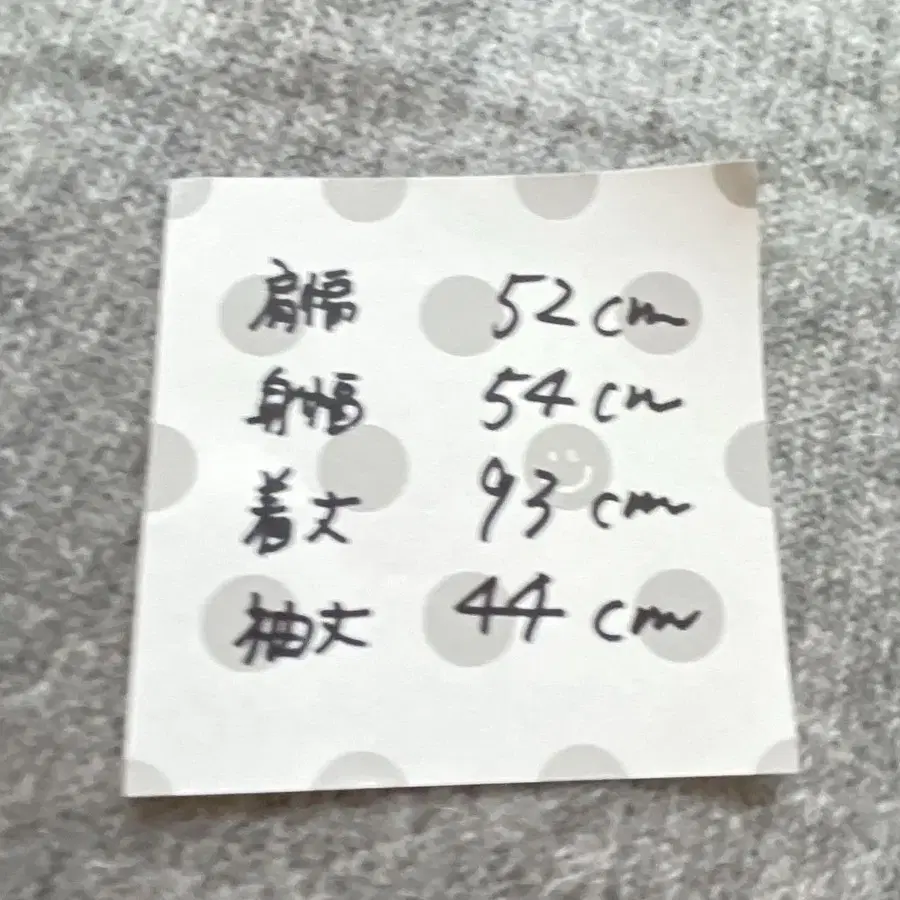 肩幅 52cm
身幅 54cm
着丈 93cm
袖丈 44cm